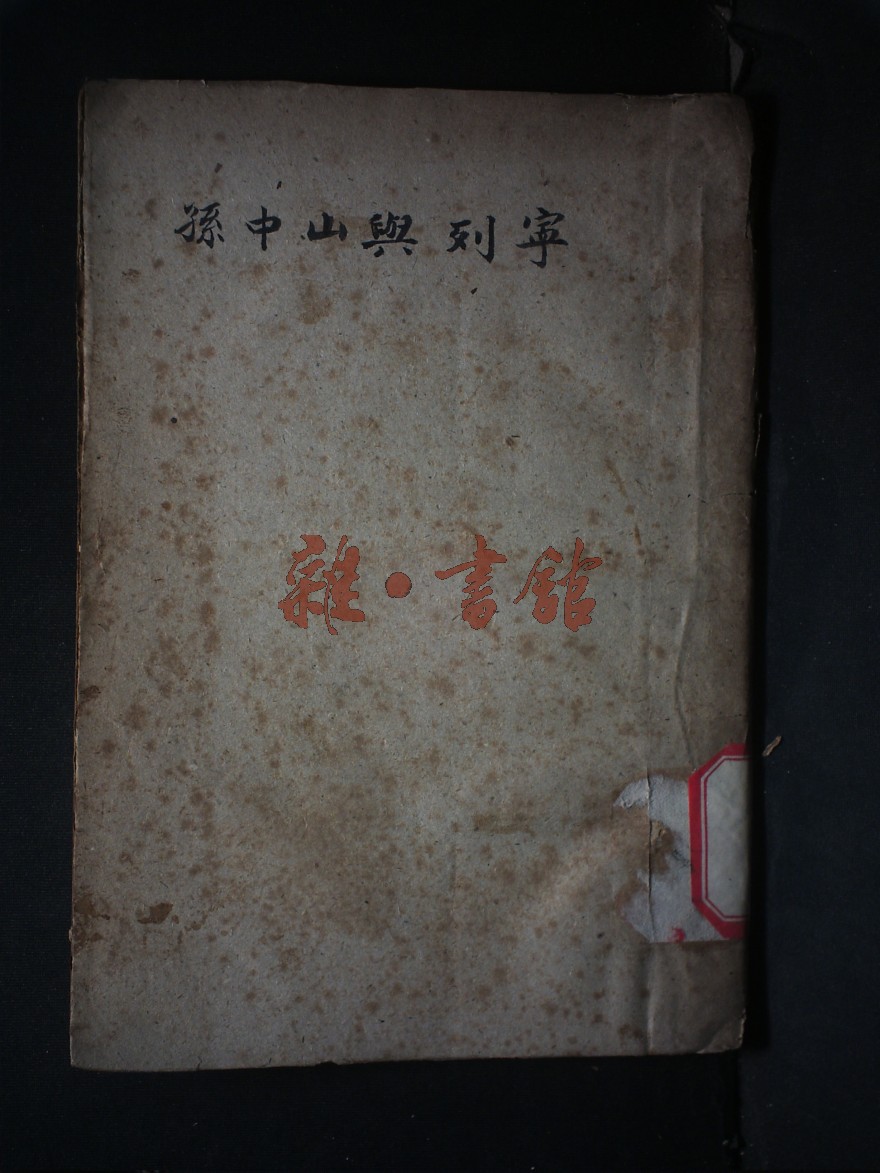 孫中山與列寧
雜·書館